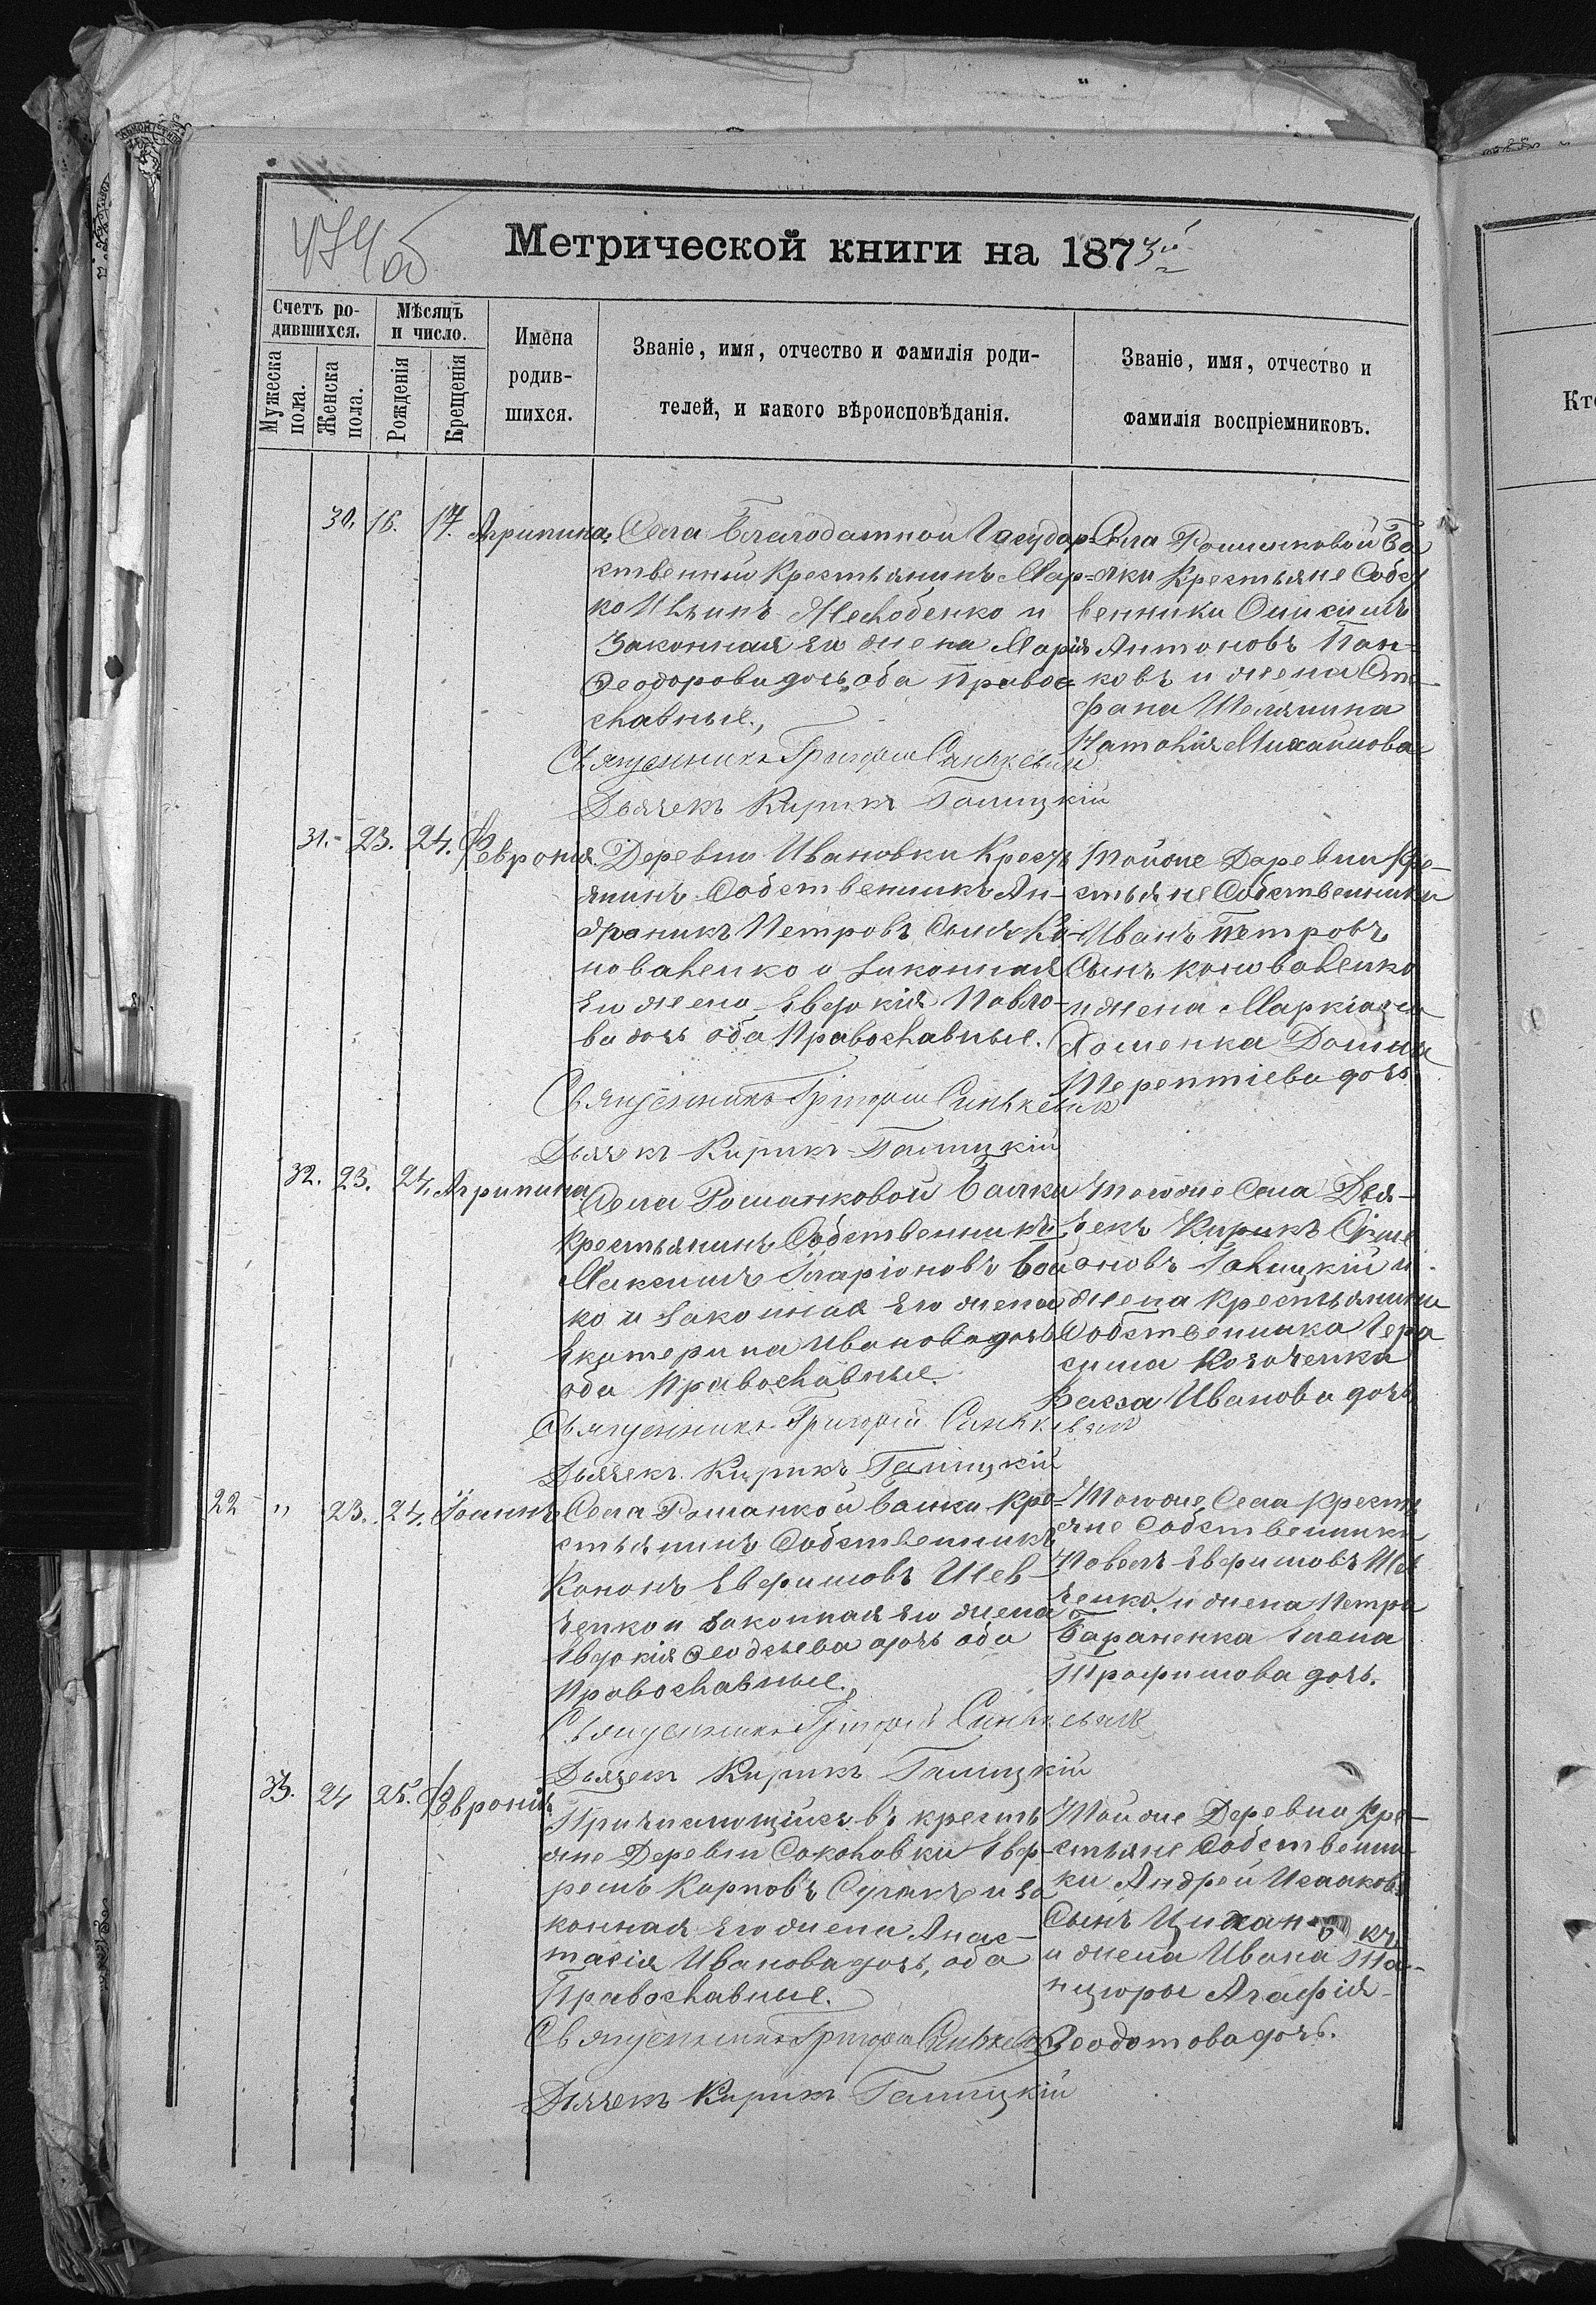 474 об
Метрической книги на 1873й
Счетъ ро-
дившихся.
Мѣсяцъ
и число.
Мужеска
пола.
Женска
пола.
Рожденія
Крещенія
Имена
родив-
шихся.
Званіе, имя, отчество и фамилія роди-
телей, и какого вѣроисповѣданія.
Званіе, имя, отчество и
фамилія воспріемниковъ.
30. 16. 17. Агрипина
Села Благодатной Государ-
ственный Крестьянинъ Мар-
ко Ильинъ и
законная его жена Марія
Феодорова дочь, оба Право-
славные.
Священникъ Григорій Синькевичъ
Дьячекъ Кирикъ Галицкій
Села Романковой Ба
лки Крестьяне Собст
венники Онисимъ
Антоновъ Пан-
ковъ и жена Сте-
фана
Наталія Михайлова
31. 23. 24. Февронія
Деревни Ивановки Кресть
янинъ Собственникъ Ан-
дроникъ Петровъ Сынъ Ко-
новаленко и законная
его жена Евдокія Павло-
ва дочь оба Православные.
Священникъ Григорій Синькевичъ
Дьячекъ Кирикъ Галицкій
Тойже Деревни Кре-
стьяне Собственники
Иванъ Петровъ
Сынъ Коноваленко
и жена Маркіяна
Хоменка Домна
Терентіева дочь
32. 23. 24. Агрипина
Села Романковой Балки
Крестьянинъ Собственникъ
Максимъ Иларіоновъ Бой
ко и законная его жена
Екатерина Иванова дочь
оба Православные.
Священникъ Григорій Синькевичъ
Дьячекъ Кирикъ Галицкій
Тогоже Села Дья-
чекъ Кирикъ Симе
оновъ Галицкій и
жена Крестьянина
Собственника Гера
сима Козаченка
Васса Иванова дочь
22 " 23. 24. Іоаннъ
Села Романкой Балки Кре-
стьянинъ Собственникъ
Кононъ Евфимовъ Шев-
ченко и законная его жена
Евдокія дочь оба
Православные.
Священникъ Григорій Синькевичъ
Дьячекъ Кирикъ Галицкій
Тогоже Села Кресть
яне Собственники
Павелъ Евфимовъ Шев
ченко и жена Петра
Бараненка
Трофимова дочь.
33. 24 25. Февронія
Причисляющійся въ кресть
яне Деревни Соколовки Ееф-
ремъ Карповъ и за
конная его жена Анас-
тасія Иванова дочь, оба
Православные.
Священникъ Григорій Синькевичъ
Дьячекъ Кирикъ Галицкій
Тойже Деревни Кре-
стьяне Собственни-
ки Андрей Исааковъ
Сынъ
и жена Ивана
Агафія
Феодотова дочь.
Кто